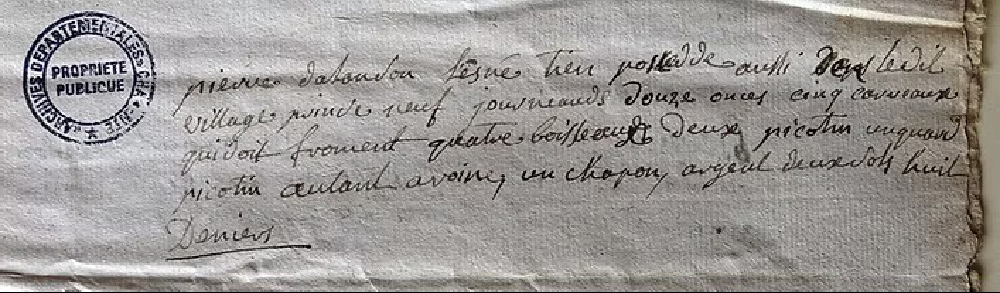 ARCHIVES DEPARTEMENTALES CHARENTE
PROPRIETE
PUBLIQUE
pierre dalandou lesné tien possedde aussi dans ledit
village prinde neuf journeauds douze onces cinq carreaux
quidoit froment quatre boisseaux deux picotin unquard
picotin autant avoine, un chapon, argent deux sols huit
Deniers